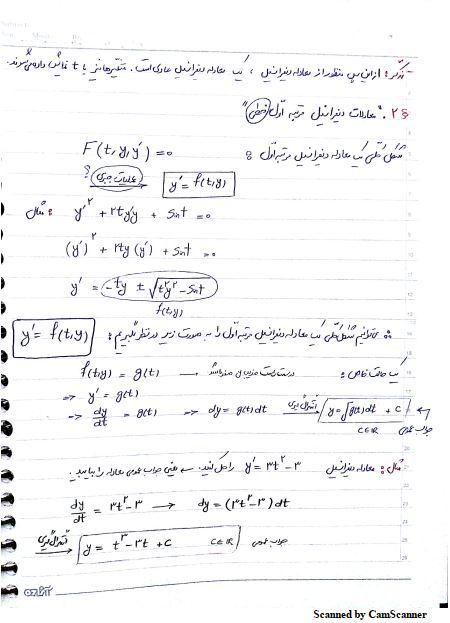 تذکر: از این پس منظور از معادله دیفرانسیل، یک معادله دیفرانسیل عادی است. متغیرها نیز با t نمایش داده می‌شوند.
§۲. "معادلات دیفرانسیل مرتبه اول خطی"
شکل کلی یک معادله دیفرانسیل مرتبه اول: F(t,y,y') = 0
عملیات جبری ؟ → y' = f(t,y)
مثال: y'^۲ + ۲ty'y + Sint = 0
(y')^۲ + ۲ty(y') + Sint = 0
y' = -ty ± √(t^۲y^۲ - Sint)
f(t,y)
می‌توانیم شکل کلی یک معادله دیفرانسیل مرتبه اول را به صورت زیر در نظر بگیریم: y' = f(t,y)
یک حالت خاص: f(t,y) = g(t)
⇒ y' = g(t)
⇒ dy/dt = g(t) ⇒ dy = g(t)dt انتگرال‌گیری → y = ∫g(t)dt + C
C∈ℝ جواب عمومی
مثال: معادله دیفرانسیل y' = ۳t^۲ - ۳ را حل کنید. یعنی جواب عمومی معادله را بیابید.
dy/dt = ۳t^۲ - ۳ → dy = (۳t^۲ - ۳)dt
انتگرال‌گیری → y = t^۳ - ۳t + C C∈ℝ جواب عمومی
Scanned by CamScanner